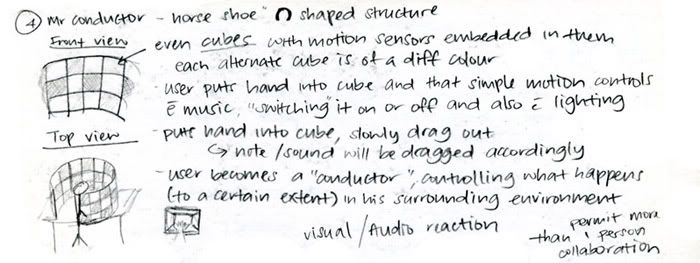 ④ Mr conductor - "horse shoe" ∩ shaped structure
Front view
even cubes with motion sensors embedded in them
each alternate cube is of a diff colour
- user puts hand into cube and that simple motion controls
ē music, "switching" it on or off and also ē lighting
Top view
- puts hand into cube, slowly drag out
↳ note / sound will be dragged accordingly
- user becomes a "conductor", controlling what happens
(to a certain extent) in his surrounding environment
visual / Audio reaction
permit more
than 1 person
collaboration